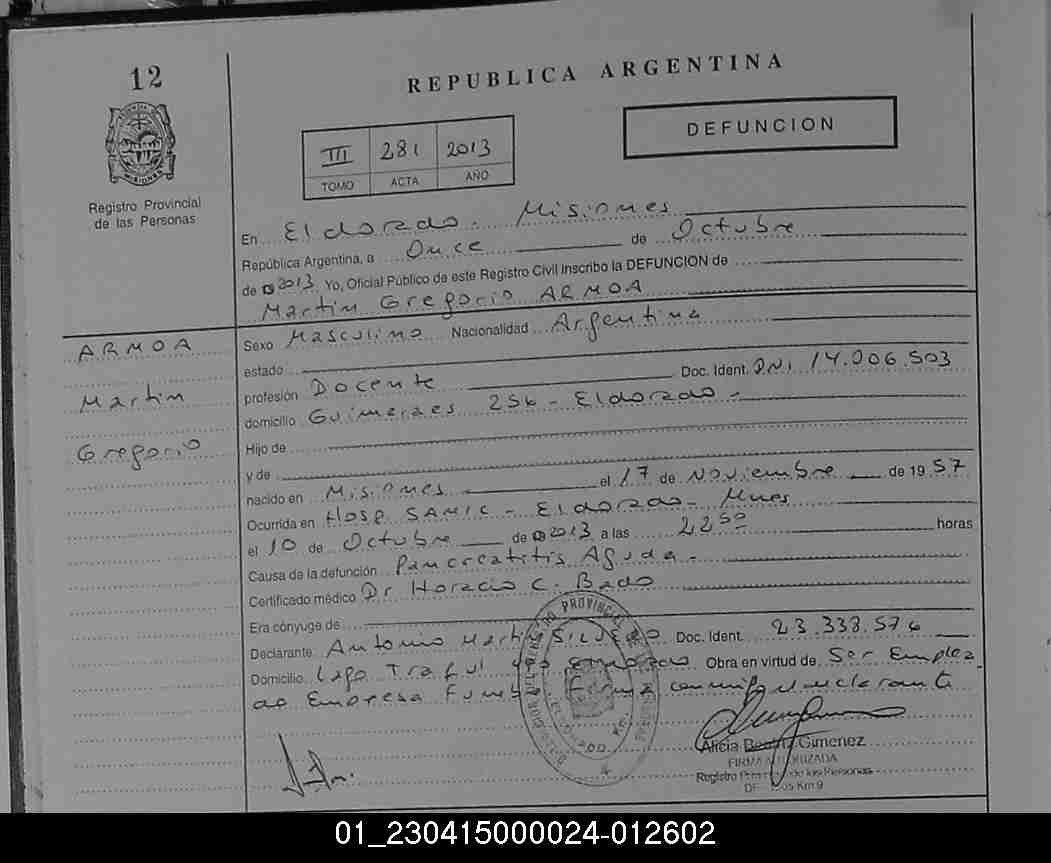 12
REPUBLICA ARGENTINA
DEFUNCION
III 281 2013
TOMO ACTA AÑO
Registro Provincial
de las Personas
En Eldorado. Misiones
República Argentina, a Once de Octubre
de 2013 Yo, Oficial Público de este Registro Civil Inscribo la DEFUNCION de
Martin Gregorio ARMOA
ARMOA
Martin
Gregorio
Sexo Masculino Nacionalidad Argentina
estado
profesión Docente Doc. Ident. DNI 14.006.503
domicilio Guimeraes 256 - Eldorado -
Hijo de
y de
nacido en Misiones el 17 de Noviembre de 1957
Ocurrida en Hosp. SAMIC - Eldorado - Mnes
el 10 de Octubre de 2013 a las 22 50 horas
Causa de la defunción Pancreatitis Aguda -
Certificado médico Dr Horacio C. Bado
Era cónyuge de
Declarante Antonio Martin Doc. Ident. 23.338.576
Domicilio Lago Traful Obra en virtud de Ser Emplea
do Empresa Funeb. Firma conmigo declarante
Alicia Beatriz Gimenez
FIRMA AUTORIZADA
Registro Provincial de las Personas
Km 9
01_230415000024-012602